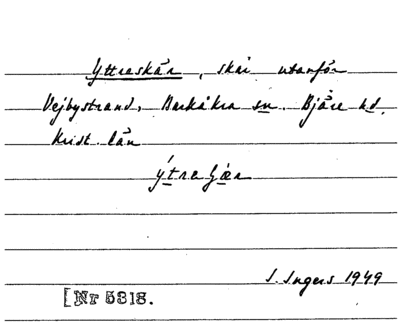 Yttraskär, skär utanför
Vejbystrand, Barkåkra sn. Bjäre hd.
Krist. län
I. Ingers 1949
[Nr 5318.